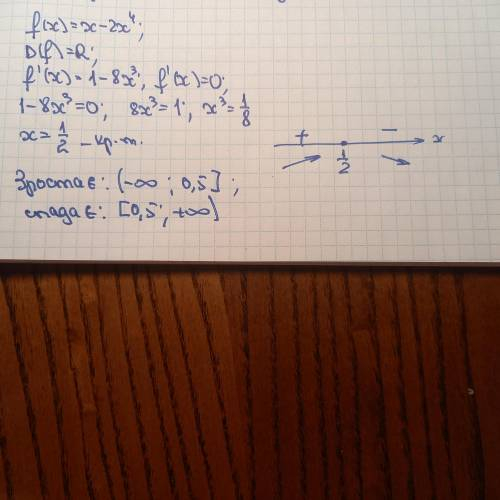 f(x)=x-2x⁴;
D(f)=R;
f'(x)=1-8x³, f'(x)=0;
1-8x³=0; 8x³=1; x³=1/8
x=1/2 - кр.т.
+ - x
1/2
Зростає: (-∞; 0,5];
спадає: [0,5; +∞)